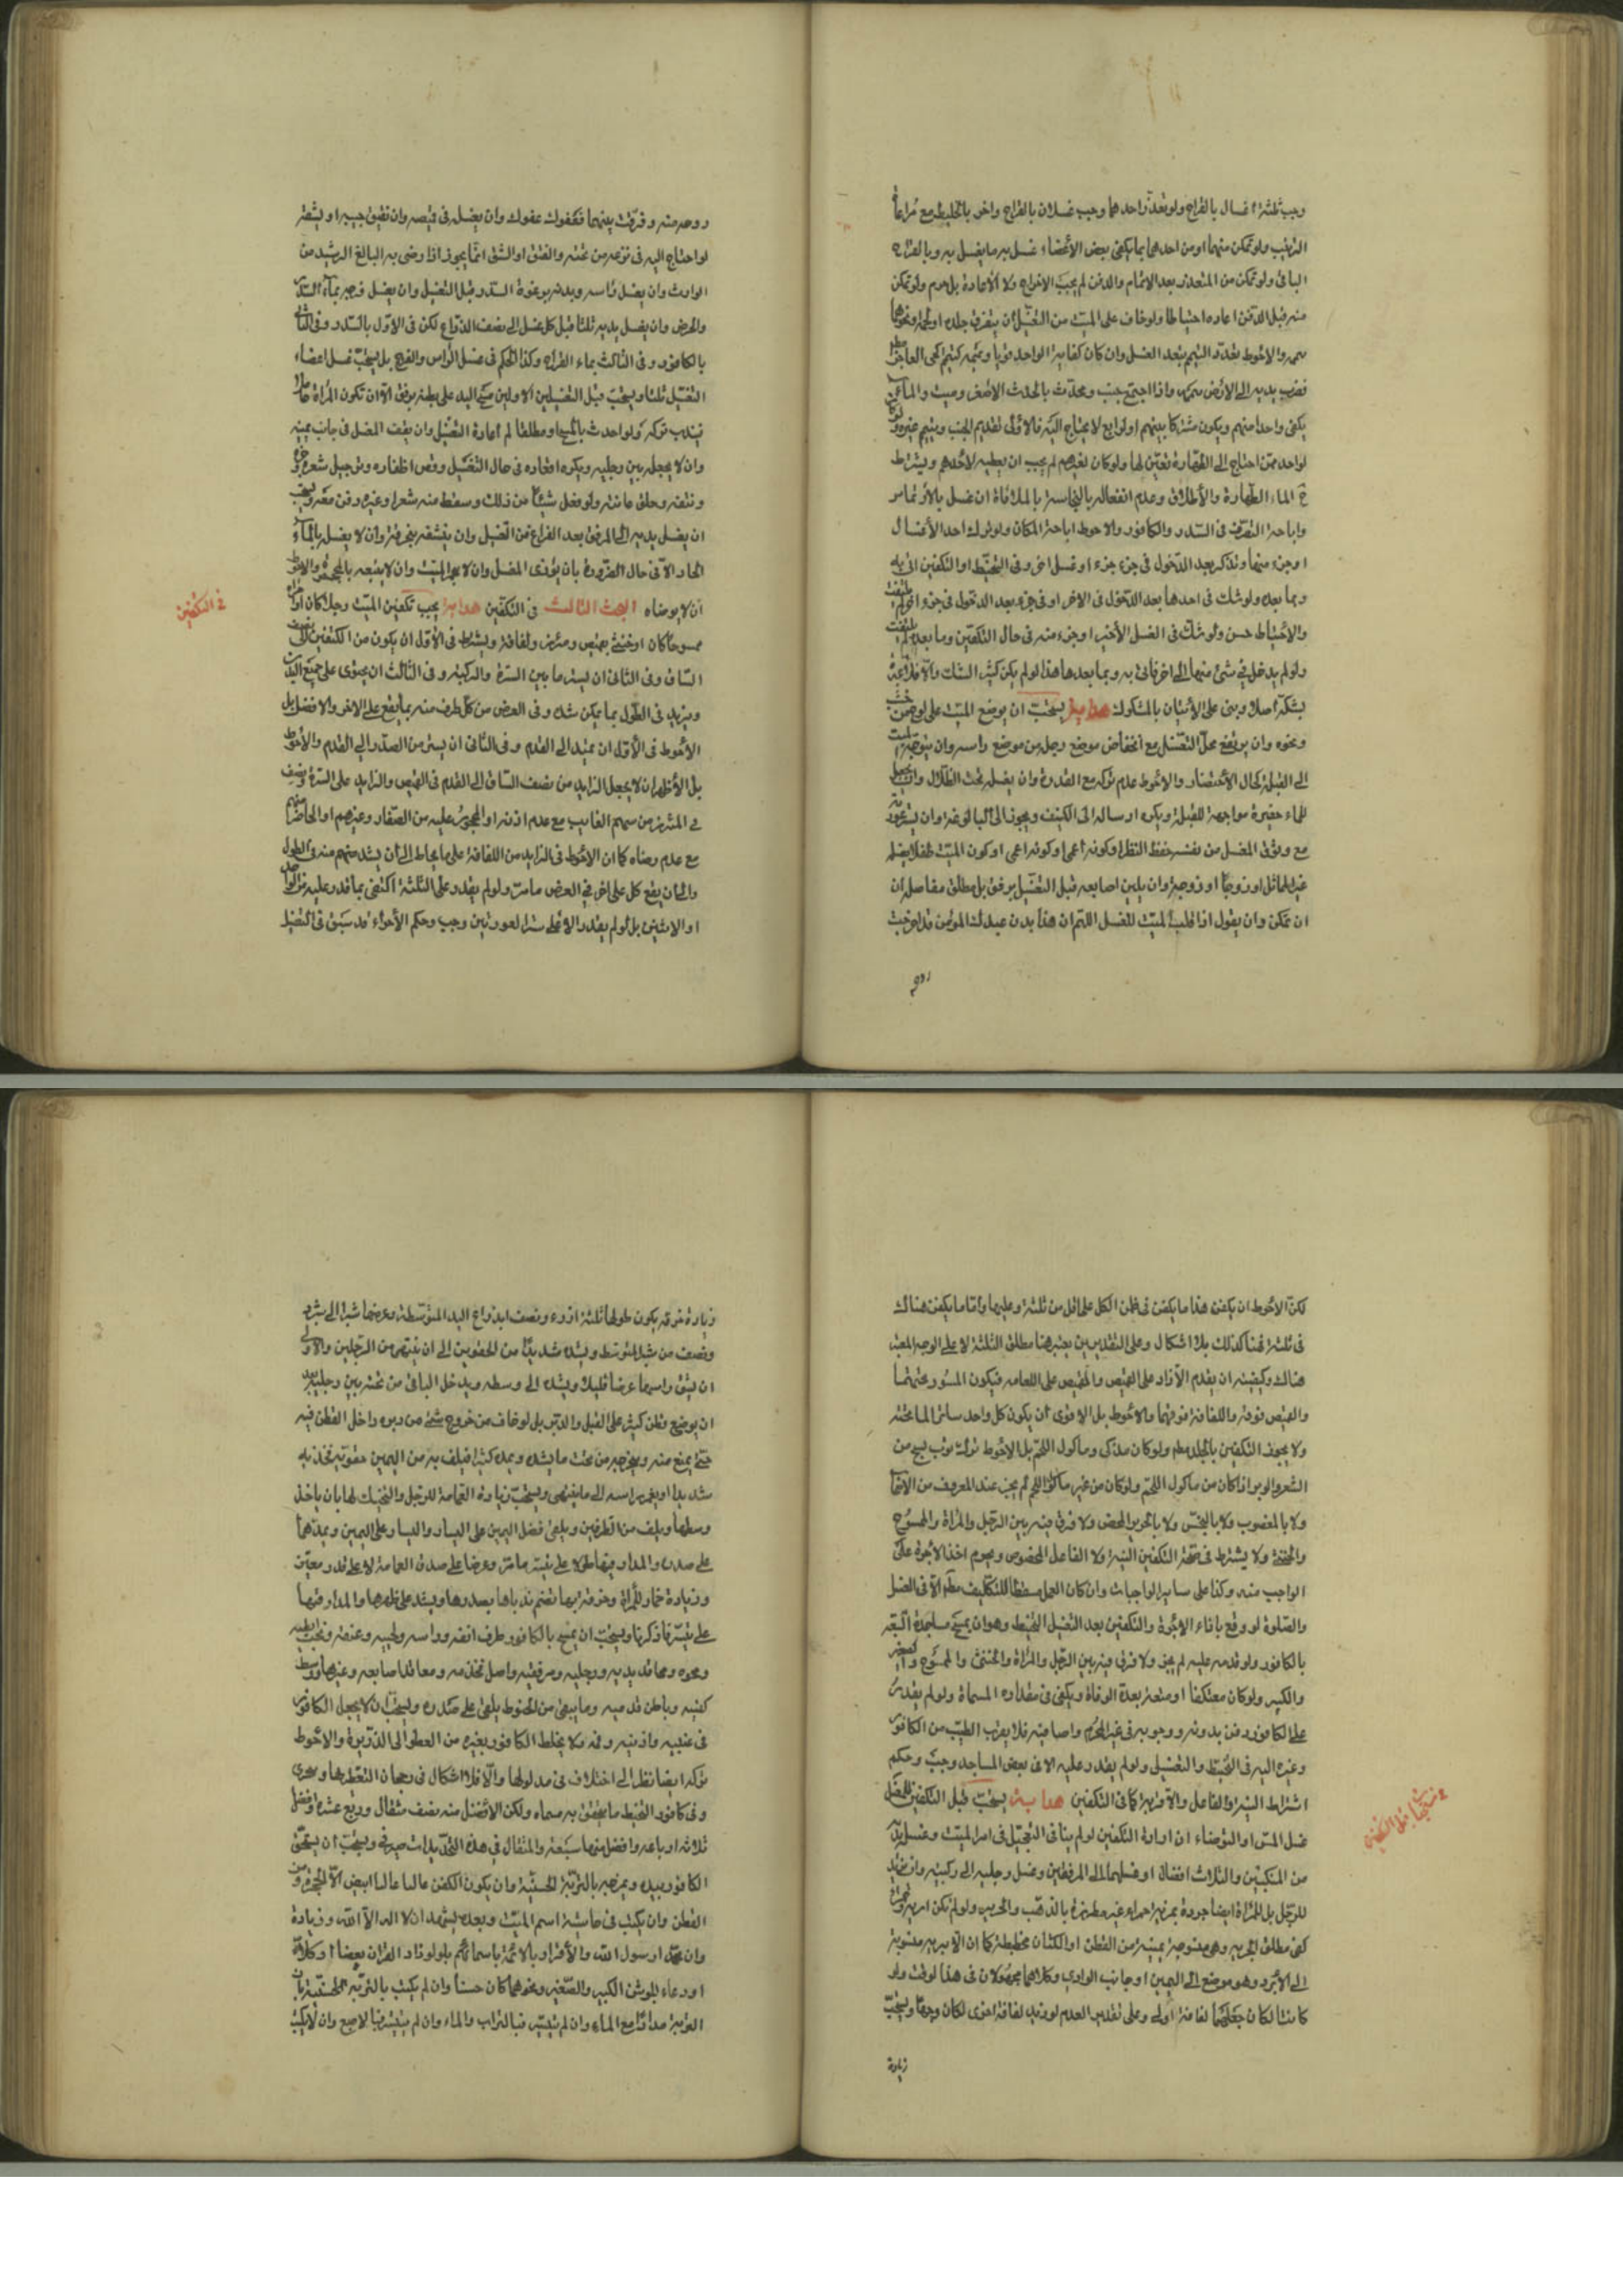 وجب ثلثة اغسال بالقراح ولو تعذّر احدهما وجب غسلان بالقراح واخر بالخليط مع مراعاة
الترتيب ولو تمكن منهما او من احدهما بما يكفى بعض الأعضاء غسل به ما يغسل به وبالقراح
الباقى ولو تمكن من المتعذر بعد الاتمام والدفن لم يجب الاخراج ولا الاعادة بل حرم ولو تمكن
منه قبل الدفن اعاده احتياطا ولو خاف على الميّت من التغسيل ان يتفرق جلده او لحمه ونحوهما
يممه والاحوط تعدّد التيمم بتعدد الغسل وان كان كفاية الواحد قويا وييممه كتيمم الحى العاجز
فضرب يديه الى الارض بتحرى واذا اجتمع جنب ومحدث بالحدث الاصغر وميت والماء
يكفى واحدا منهم ويكون مشتركا بينهم او لواقع لا يحتاج اليه فالأولى تقديم الجنب وييمم غيره ولو كان
لواحد ممّن احتاج الى الطهارة تعيّن لها ولو كان لغيرهم لم يجب ان يعطيه لأحدهم ويشترط
فى الماء الطهارة والأطلاق وعدم انفعاله بالنجاسة بالملاقاة ان غسل بالارتماس
واباحة التصرف فى السدر والكافور والاحوط اباحة المكان ولو ترك احد الأغسال
او جزء منها وتذكر بعد الدخول فى جزء جزء او غسل اخر وفى التحنيط او التكفين اتى به
وبما بعده ولو شك فى احدها بعد الدخول فى الاخر او فى جزء بعد الدخول فى جزء اخر لم يلتفت
والاحتياط حسن ولو شك فى الغسل الأخير او جزء منه فى حال التكفين وما بعده لم يلتفت
ولو لم يدخل فى شئ منها الى اخر فاتى به وبما بعدها هذا لو لم يكن كثير الشك والا فلا عبرة
بشكه اصلا وبنى على الأتيان بالمشكوك هداية يستحب ان يوضع الميت على لوح من خشب
ونحوه وان يرتفع محلّ التغسل مع انخفاض موضع رجليه من موضع راسه وان يتوجه الميت
الى القبلة كحال الأحتضار والاحوط عدم تركه مع القدرة وان يغسله تحت الظلال وان يجعل
للماء حفيرة مواجهة للقبلة ويكره ارساله الى الكنيف ويجوز الى البالوعة وان يستر عورته
مع وثوق المغسل من نفسه حفظ النظر او كونه اعمى او كونه اعمى او كون الميت طفلا يغسله
غير المماثل او زوجا او زوجة وان يلين اصابعه قبل التغسيل برفق بل مطلق مفاصله ان
ان تمكن وان يقول اذا قلب الميت للغسل اللهم ان هذا بدن عبدك المؤمن قد اخرجت
روحه
روحه منه وفرقت بينهما فعفوك عفوك وان يغسل فى قميصه وان تضيق جيبه او يشقه
لو احتاج اليه فى نزعه من تحته والفتق او الشق انما يجوز اذا رضى به البالغ الرشيد من
الوارث وان يغسل راسه وبدنه برغوة السدر قبل التغسيل وان يغسل فرجه بماء السدر
والحرض وان يغسل يديه ثلثا قبل كل غسل الى نصف الذراع لكن فى الاوّل بالسّدر وفى الثانى
بالكافور وفى الثالث بماء القراح وكذا الحكم فى غسل الراس والفرج بل يستحب غسل اعضاء
التغسيل ثلثا ويستحب قبل التغسيلين الاولين مسح اليد على بطنه برفق الا ان تكون المرأة حاملا
فيندب تركه ولو احدث بالمسح او مطلقا لم اعادة التغسيل وان يقف المغسل فى جانب يمينه
وان لا يجعله بين رجليه ويكره اقعاده فى حال التغسيل وقص اظفاره وترجيل شعره
ونتفه وحلق عانته ولو فعل شيئا من ذلك وسقط منه شعر او غيره دفن معه ويستحب
ان يغسل يديه الى المرفق بعد الفراغ من الغسل وان ينشفه بخرقة وان لا يغسل بالماء
الحار الا فى حال الضرورة بان يؤذى المغسل وان لا يجر الميت وان لا يتبعه بالمجمرة والاحوط
ان لا يوضاه البحث الثالث فى التكفين هداية يجب تكفين الميت رجلا كان او امراة
ممسوحا كان او خنثى بقميص ومئزر ولفافة ويشترط فى الأول ان يكون من الكتفين الى نصف
الساق وفى الثانى ان يستر ما بين السرة والركبة وفى الثالث ان يحتوى على جميع البدن
ويزيد فى الطول بما يمكن شده وفى العرض من كل طرف منه بما يقع على الاخر والافضل بل
الأحوط فى الأول ان يمتد الى القدم وفى الثانى ان يستر من الصدر الى القدم والاحوط
بل الأظهر ان لا يجعل الزايد من نصف الساق الى القدم فى القميص والزايد على السرة ونصف
فى المئزر من سهم الغايب مع عدم اذنه او المحجور عليه من الصغار وغيرهم او الحاضر منهم
مع عدم رضاه كما ان الاحوط فى الزايد من اللفافة على ما يحاط الى ان يشد منهم منه فى الطول
والى ان يقع كل على اخر فى العرض ما مرّ ولو لم يقدر على الثلثة اكتفى بما قدر عليه من الواحد
او الاثنين بل لو لم يقدر الا على ستر العورتين وجب وحكم الأجزاء قد سبق فى الغسل
فى التكفين
لكن الاحوط ان يكفن هذا ما يكفن فى قطن الكل على اقل من ثلثة وعليها واما ما يكفن هناك
فى ثلثة فهنا كذلك بلا اشكال وعلى التقديرين يعتبر هنا مطلق الثلثة لا على الوجه المعتبر
هناك وكيفيته ان يقدم الأزار على القميص والقميص على اللفافة فيكون المئزر تحتهما
والقميص فوقه واللفافة فوقهما والاحوط بل الاقوى ان يكون كل واحد ساترا لما تحته
ولا يجوز التكفين بالجلد مطلقا ولو كان مذكى وماكول اللحم بل الاحوط ترك ثوب نسج من
الشعر والوبر اذا كان من ماكول اللحم ولو كان من غير ماكول اللحم لم يجز عند المعروف من الاصحاب
ولا بالمغصوب ولا بالنجس ولا بالحرير المحض ولا فرق فيه بين الرجل والمراة والممسوح
والخنثى ولا يشترط فى صحة التكفين النية ولا الفاعل المخصوص ويحرم اخذ الاجرة على
الواجب منه وكذا على ساير الواجبات وان كان العمل مسقطا للتكليف مطلقا الا فى الغسل
والصلوة لو وقع بازاء الاجرة والتكفين بعد التغسيل التحنيط وهو ان يمسح مساجده السبعة
بالكافور ولو قدمه عليه لم يجز ولا فرق فيه بين الرجل والمراة والخنثى والممسوح والصغير
والكبير ولو كان معتكفا او معتدة بعدة الوفاة ويكفى فى مقداره المسماة ولو لم يقدر
على الكافور دفن بدونه ووجوبه فى غير المحرم واما فيه فلا يقرب الطيب من الكافور
وغيره اليه فى التحنيط والتغسيل ولو لم يقدر عليه الا فى بعض المساجد وجب وحكم
اشتراط النية والفاعل والاجزاء كما فى التكفين هداية يستحب قبل التكفين للمغسل
غسل المس او التوضاء ان اراد التكفين لو لم ينافى التعجيل فى امر الميت وغسل يديه
من المنكبين والثلاث افضل او غسلهما الى المرفقين وغسل رجليه الى ركبتيه وان يزيد
للرجل بل للمراة ايضا بردة يمنية حمراء غير مطرزة بالذهب والحرير ولو لم تكن
كفى مطلق الحبرة وهى منسوجة يمنية من القطن او الكتان مخططة كما ان الابرية منسوبة
الى الأبرد وهو موضع الى اليمن او جانب الوادى وكلاهما مجهولان فى هذا الوقت ولو
كانتا لكان جعلهما لفافة اولى وعلى تقدير العدم لو زيد لفافة اخرى لكان وجها ويستحب
زيادة
مستحبات قبل التكفين
زيادة خرقة يكون طولها ثلثة اذرع ونصف بذراع اليد المتوسطة وعرضها شبرا الى شبر
ونصف من شبر المتوسط ويشد شديدا من الحقوين الى ان ينتهى من الرجلين والاولى
ان يشق راسها عرضا قليلا ويشد الى وسطه ويدخل الباقى من تحته بين رجليه بعد
ان يوضع قطن كثير على القبل والدبر بل لو خاف من خروج شئ من دبره داخل القطن فيه
حتى يمنع منه ويخرجه من تحت ما يشده ويمده كثيرا فيلف به من اليمين حقويه فخذيه
شديدا ويغمر راسه الى ما ينتهى ويستحب زيادة العمامة للرجل والتحنك لها بان ياخذ
وسطها ويلف من الطرفين ويلقى فضل اليمين على اليسار واليسار على اليمين ويمدهما
على صدره والمدار فيها طولا على هيئة ما مر وعرضا على صدق العمامة لا على قدر معين
وزيادة خمار للمراة وخرقة بها تضم ثدياها بصدرها ويشد على ظهرها والمدار فيها
على هيئة ما ذكرنا ويستحب ان يمسح بالكافور طرف انفه وراسه ولحيته وعنقه وتحت ابطيه
ونحوه ومحاقد يديه ورجليه ومرفقيه واصل فخذيه ومعاقد اصابعه وغيرها ووسط
كفيه وباطن قدميه وما يبقى من الحنوط يلقى على صدره ويستحب ان لا يجعل الكافور
فى عينيه واذنيه وفمه ولا يخلط الكافور بغيره من العطر الى الذريرة والاحوط
تركه ايضا نظرا الى اختلاف فى مدلولها والا فلا اشكال فى رجحان التغطية بها
وفى كافور التحنيط ما يتحقق به مسماه ولكن الأفضل منه نصف مثقال وربع عشرة وافضل
ثلاثة ارباعه وافضل منها سبعة والمثقال فى هذه التحديدات صيرفى ويستحب ان يسحق
الكافور بيده ويمزجه بالتربة الحسينية وان يكون الكفن غاليا عاليا ابيض الا الحبرة ومن
القطن وان يكتب فى حاشية اسم الميت وبعده يشهد ان لا اله الا الله وزيادة
وان محمدا رسول الله والأقرار بالائمة باسمائهم بل ولو زاد القران بعضا او كلا
او دعاء الجوشن الكبير والصغير ونحوهما كان حسنا وان لم يكتب بالتربة الحسينية
العزيزة مدافا مع الماء وان لم يتيسر فبالتراب والماء وان لم يتيسر فبالاصبع وان لا يكتب